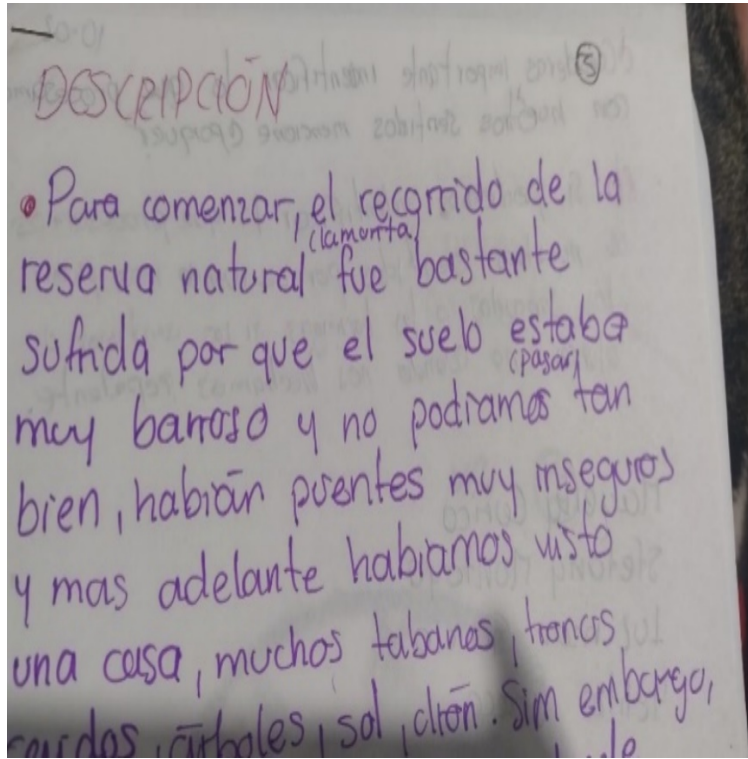 DESCRIPCIÓN
5
• Para comenzar, el recorrido de la
(lamorita)
reserva natural fue bastante
sufrida por que el suelo estaba
(pasar)
muy barroso y no podiamos tan
bien, habián puentes muy inseguros
y mas adelante habiamos visto
una casa, muchos tabanos, troncos
caidos, árboles, sol,. Sim embargo,